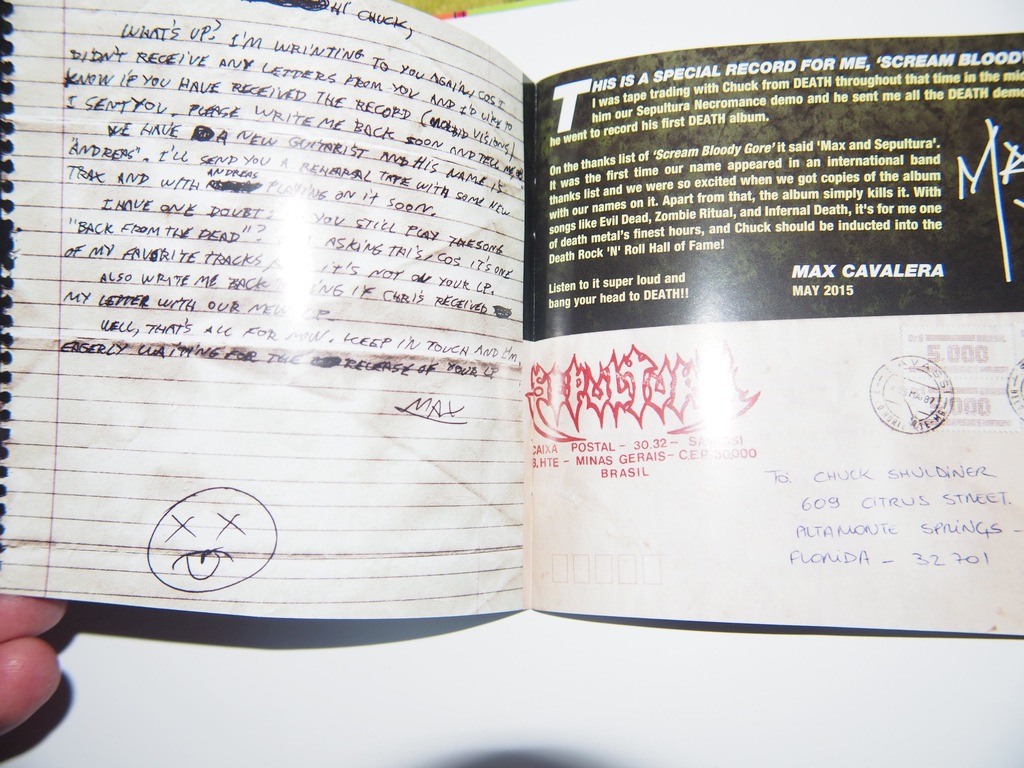 HI CHUCK,
WHAT'S UP? I'M WRINTING TO YOU AGAIN, COS I
DIDN'T RECEIVE ANY LETTERS FROM YOU AND I'D LIKE TO
KNOW IF YOU HAVE RECEIVED THE RECORD (MORBID VISIONS)
I SENT YOU. PLEASE WRITE ME BACK SOON AND TELL ME
WE HAVE A NEW GUITARIST AND HIS NAME IS
"ANDREAS". I'LL SEND YOU A REHEARSAL TAPE WITH SOME NEW
TRAX AND WITH ANDREAS PLAYING ON IT SOON.
I HAVE ONE DOUBT: YOU STILL PLAY THE SONG
"BACK FROM THE DEAD"? ASKING THIS, COS IT'S ONE
OF MY FAVORITE TRACKS IT'S NOT ON YOUR LP.
ALSO WRITE ME BACK IF CHRIS RECEIVED
MY LETTER WITH OUR NEW LP
WELL, THAT'S ALL FOR NOW. KEEP IN TOUCH AND I'M
EAGERLY WAITING FOR THE RELEASE OF YOUR LP
MAX
THIS IS A SPECIAL RECORD FOR ME, 'SCREAM BLOODY
I was tape trading with Chuck from DEATH throughout that time in the mid
him our Sepultura Necromance demo and he sent me all the DEATH demo
he went to record his first DEATH album.
On the thanks list of 'Scream Bloody Gore' it said 'Max and Sepultura'.
It was the first time our name appeared in an international band
thanks list and we were so excited when we got copies of the album
with our names on it. Apart from that, the album simply kills it. With
songs like Evil Dead, Zombie Ritual, and Infernal Death, it's for me one
of death metal's finest hours, and Chuck should be inducted into the
Death Rock 'N' Roll Hall of Fame!
Listen to it super loud and
bang your head to DEATH!!
MAX CAVALERA
MAY 2015
SEPULTURA
CAIXA POSTAL - 30.32 - SAVASSI
B.HTE - MINAS GERAIS - C.EP 30,000
BRASIL
5.000
SAVASSI
000
TO: CHUCK SHULDINER
609 CITRUS STREET.
ALTAMONTE SPRINGS -
FLORIDA - 32701